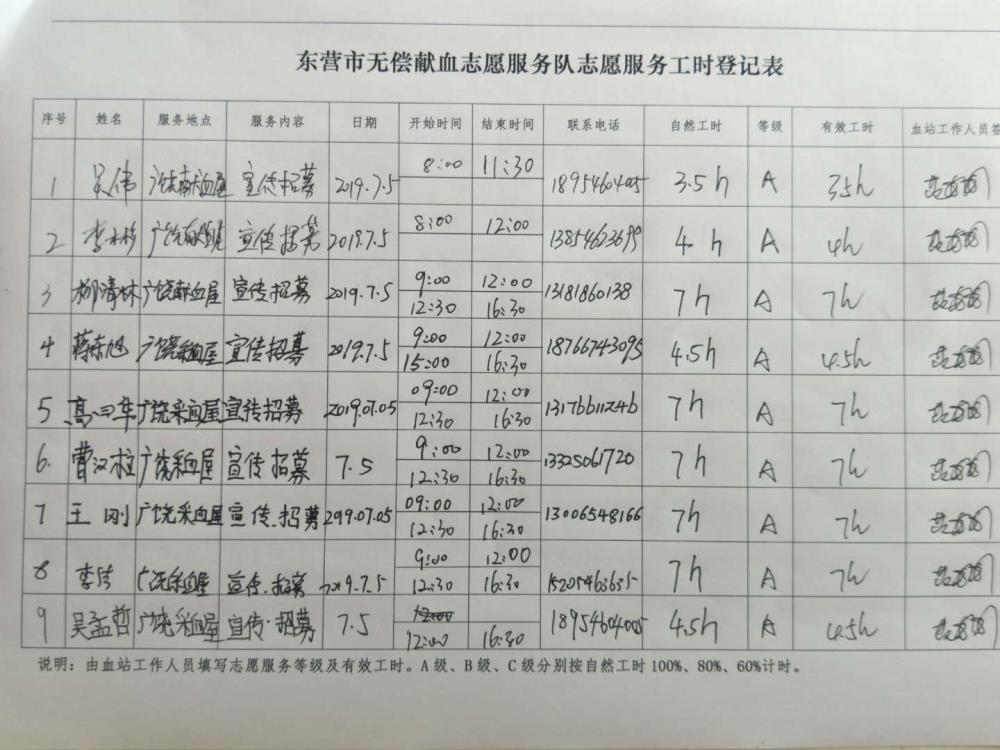 东营市无偿献血志愿服务队志愿服务工时登记表
序号 姓名 服务地点 服务内容 日期 开始时间 结束时间 联系电话 自然工时 等级 有效工时 血站工作人员签
1 吴伟 广饶献血屋 宣传招募 2019.7.5 8:00 11:30 18954604005 3.5h A 3.5h
2 李永彬 广饶献血屋 宣传招募 2019.7.5 8:00 12:00 13854623699 4h A 4h
3 柳清林 广饶献血屋 宣传招募 2019.7.5 9:00 12:00 13181860138 7h A 7h
12:30 16:30
4 蒋东旭 广饶采血屋 宣传招募 2019.7.5 9:00 12:00 18766743095 4.5h A 4.5h
15:00 16:30
5 广饶采血屋 宣传招募 2019.07.05 09:00 12:00 13176611246 7h A 7h
12:30 16:30
6. 曹汉柱 广饶采血屋 宣传招募 7.5 9:00 12:00 13325061720 7h A 7h
12:30 16:30
7 王刚 广饶采血屋 宣传.招募 2019.07.05 09:00 12:00 13006548166 7h A 7h
12:30 16:30
8 李洁 广饶采血屋 宣传.招募 2019.7.5 9:00 12:00 15205463635 7h A 7h
12:30 16:30
9 吴孟哲 广饶采血屋 宣传·招募 7.5 12:00 18954604005 4.5h A 4.5h
12:00 16:30
说明：由血站工作人员填写志愿服务等级及有效工时。A级、B级、C级分别按自然工时100%、80%、60%计时。